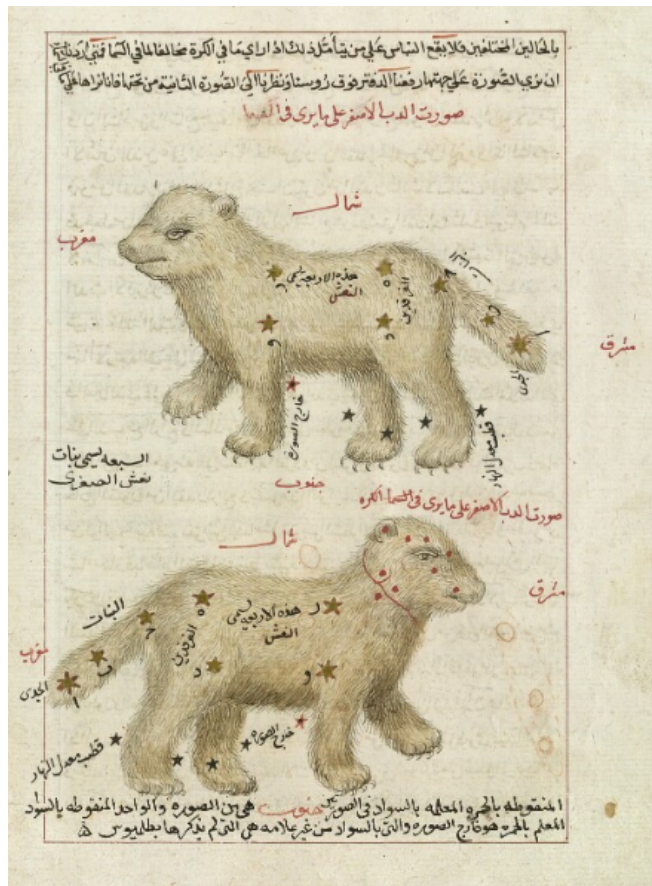 بالحالين المختلفين فلا يقع التباس على من يتأمل ذلك اذا راى ما في الكرة مخالفا لما في السما فمتى اردنا
ان نرى الصورة على جهتها رفعنا الدفتر فوق روسنا ونظرنا الى الصورة الثانية من تحتها فانا نراها على
صورت الدب الاصغر على ما يرى فى السما
شمال
مغرب
هذه الاربعه يسمى
النعش
الفرقدين
البنات
ه
و
د
ب
ا
الجدى
مشرق
خارج الصورة
قطب معدل النهار
جنوب
السبعه يسمى بنات
نعش الصغرى
صورت الدب الاصغر على ما يرى فى الكره
شمال
مشرق
البنات
هذه الاربعه يسمى
النعش
الفرقدين
ه
و
د
ب
ا
مغرب
الجدى
خارج الصورة
قطب معدل النهار
جنوب
المنقوطه بالحمره المعلمه بالسواد فى الصورتين هى من الصوره والواحد المنقوطه بالسواد
المعلم بالحمره هو خارج الصوره والتى بالسواد من غير علامه هى التى لم يذكرها بطلميوس